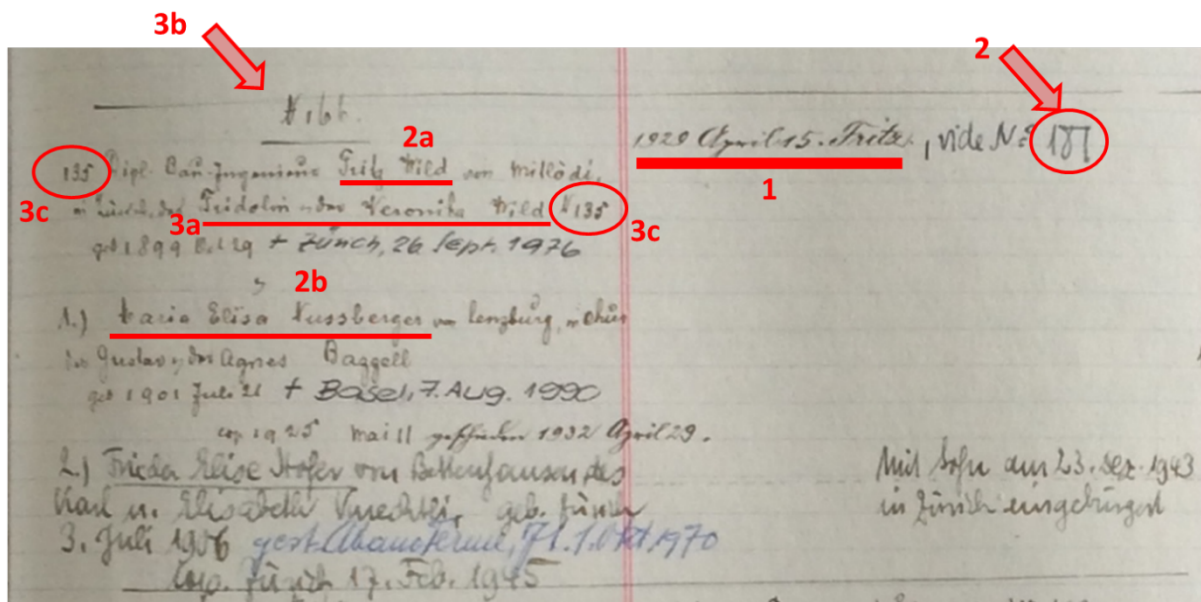 3b
2
N 166.
2a
1929 April 15. Fritz, vide No 187
1
135 Dipl. Bau-Ingenieur Fritz Wild von Mitlödi,
3c
in Zürich, des Fridolin u der Veronika Wild N 135
3a
3c
geb 1899 Oct 29 + Zürich, 26 Sept. 1976
2b
1.) Maria Elisa Nussberger von Lenzburg, in Chur
des Gustav u der Agnes Baggell
geb 1901 Juli 21 + Basel, 7. Aug. 1990
cop 1925 Mai 11 geschieden 1932 April 29.
2.) Frieda Elise Hofer von Bettenhausen des
Karl u. Elisabeth Knechtli, geb. Zürich
3. Juli 1906 gest. Abano Terme, 1. Okt 1970
Cop. Zürich 17. Feb. 1945
Mit Sohn am 23. Dez. 1943
in Zürich eingebürgert